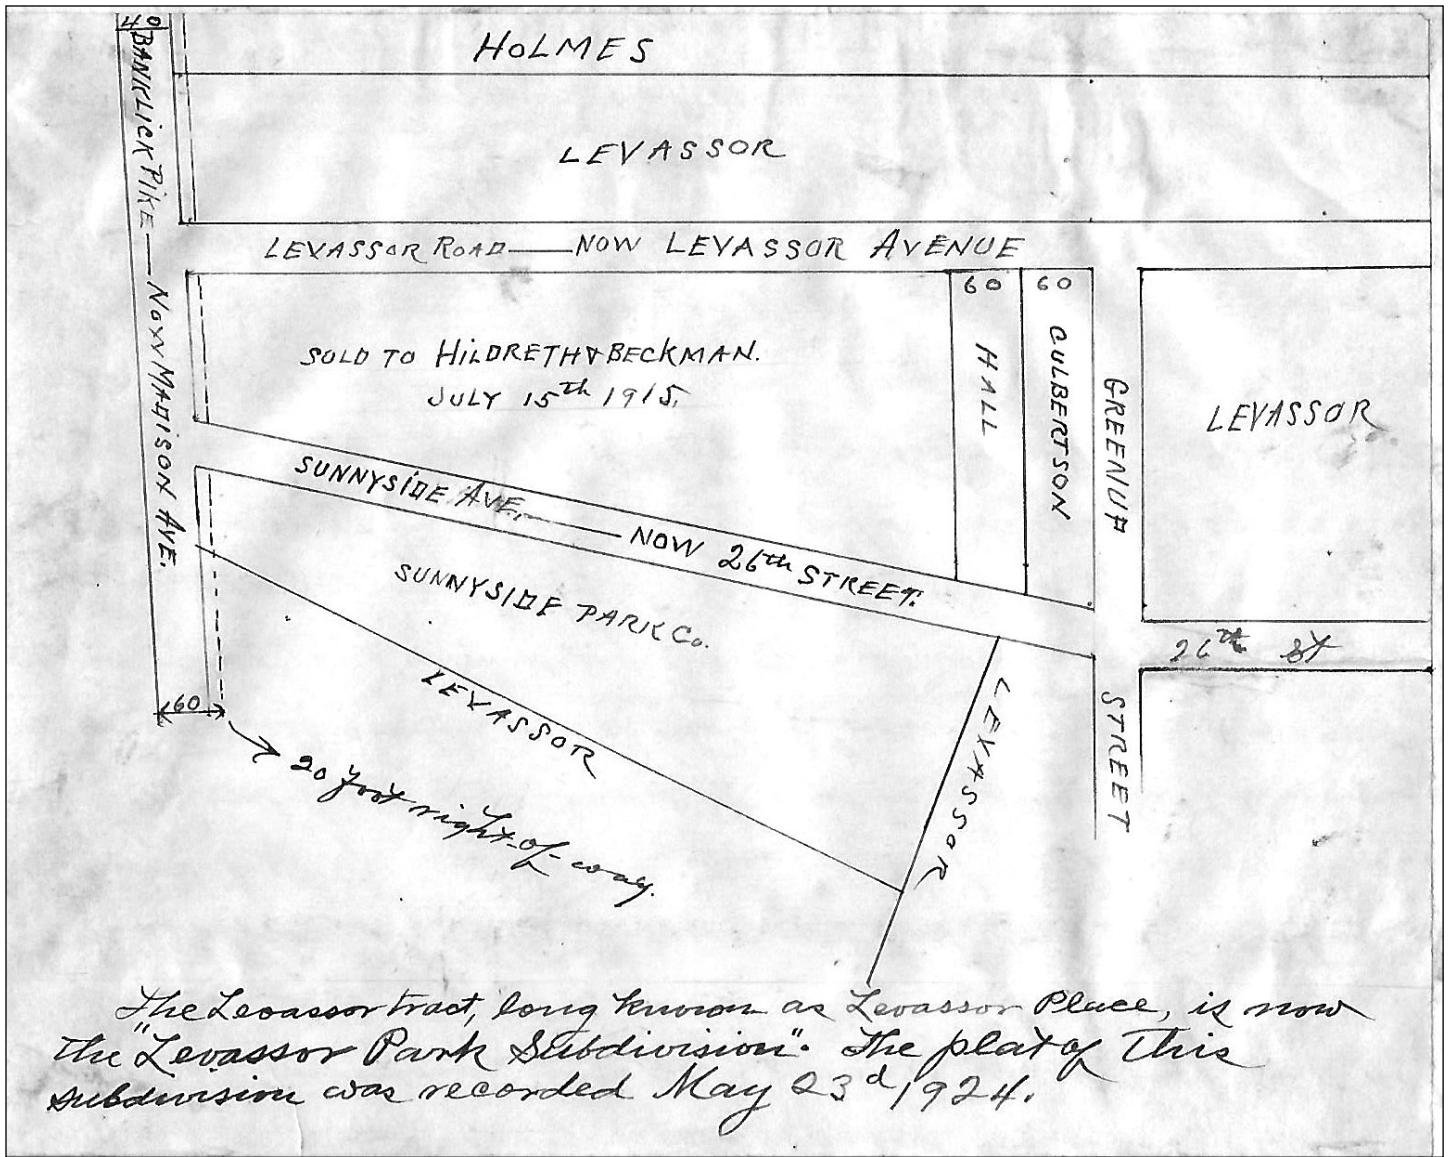 40
HOLMES
BANKLICK PIKE — NOW MADISON AVE.
LEVASSOR
LEVASSOR ROAD — NOW LEVASSOR AVENUE
60
60
SOLD TO HILDRETH & BECKMAN.
JULY 15th 1915.
HALL
CULBERTSON
GREENUP
LEVASSOR
SUNNYSIDE AVE. — NOW 26th STREET.
SUNNYSIDE PARK Co.
26th St
LEVASSOR
LEVASSOR
STREET
60
20 foot right-of-way.
The Levassor tract, long known as Levassor Place, is now
the "Levassor Park Subdivision". The plat of This
subdivision was recorded May 23d 1924.